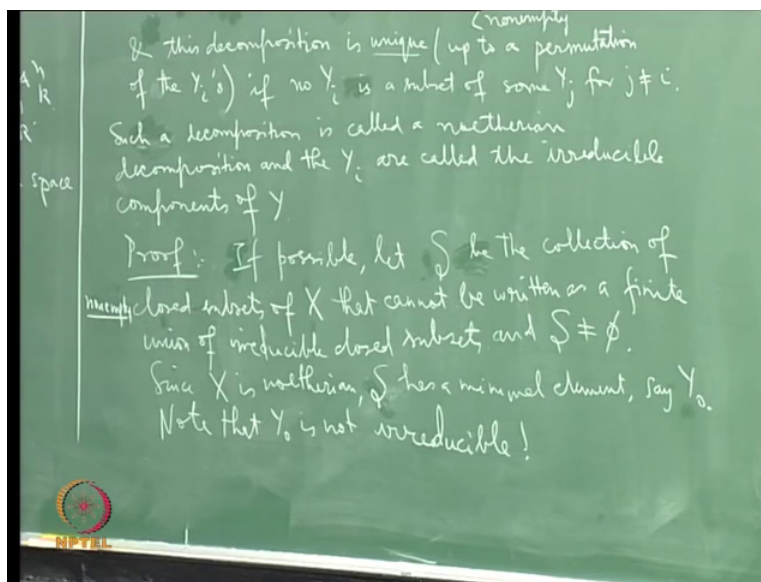 (nonempty
& this decomposition is unique (up to a permutation
of the Yᵢ's) if no Yᵢ is a subset of some Yⱼ for j ≠ i.
Such a decomposition is called a noetherian
decomposition and the Yᵢ are called the irreducible
space
components of Y
Proof:- If possible, let S be the collection of
nonempty closed subsets of X that cannot be written as a finite
union of irreducible closed subsets, and S ≠ ϕ.
Since X is noetherian, S has a minimal element, say Y₀.
Note that Y₀ is not irreducible!
NPTEL